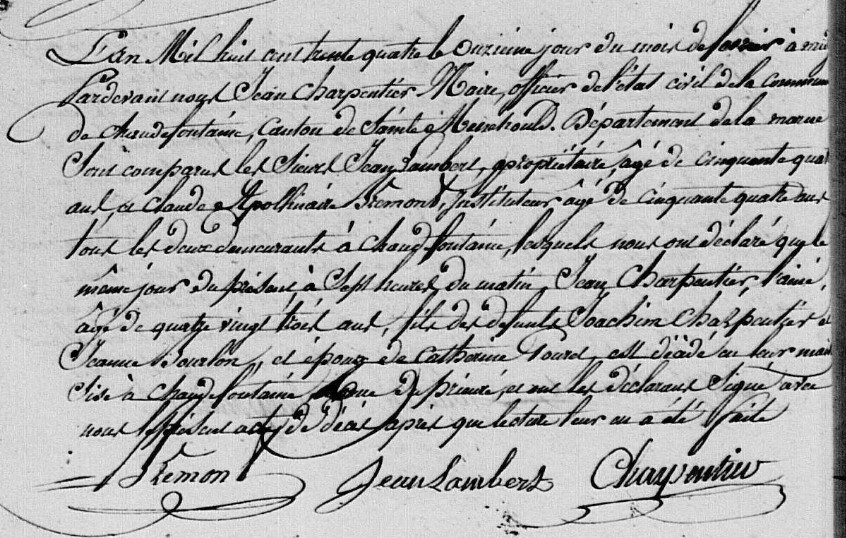 L'an Mil huit cent trente quatre le onzieme jour du mois de fevrier à midi
Pardevant nous Jean Charpentier Maire, officier de l'état civil de la commune
de Chaudefontaine, Canton de Sainte Menehould. Département de la marne
Sont comparus les Sieurs Jean Lambert, propriétaire, âgé de cinquante quatre
ans, et claude Apollinaire Fremont, Instituteur âgé de cinquante quatre ans
tous les deux demeurants à chaudefontaine, lesquels nous ont déclaré que le
même jour du présent à Sept heures du matin, Jean Charpentier, l'ainé,
âgé de quatre vingt trois ans, fils des defunts Joachim Charpentier et
Jeanne Bourlon, et époux de Catherine, est décédé en leur maison
Sise à chaudefontaine rue du prieuré, et ont les déclarans Signé avec
nous le présent acte de décès après que lecture leur en a été faite
Fremon Jean Lambert Charpentier